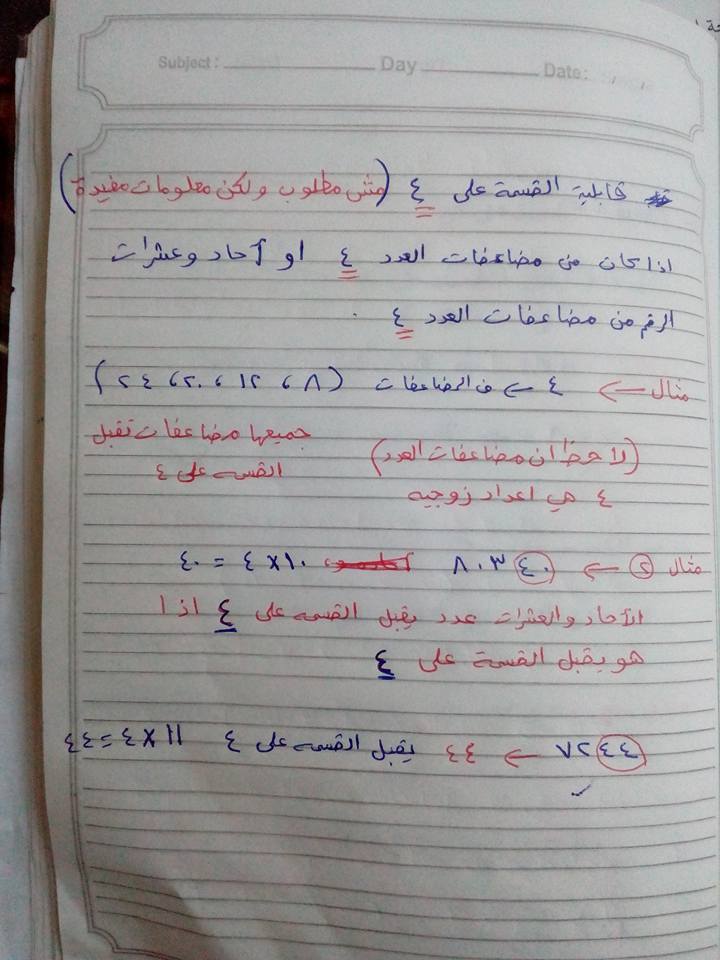 Subject : Day Date:
قابلية القسمة على ٤ (مش مطلوب ولكن معلومات مفيدة)
اذا كان من مضاعفات العدد ٤ او آحاد وعشرات
الرقم من مضاعفات العدد ٤
مثال ← ٤ ← ف المضاعفات (٨ ، ١٢ ، ٢٠ ، ٢٤)
(لاحظ ان مضاعفات العدد)
٤ هي اعداد زوجيه
جميعها مضاعفات تقبل
القسمه على ٤
مثال ٢ ← ٨٠٣٤٠ ١٠ × ٤ = ٤٠
الآحاد والعشرات عدد يقبل القسمه على ٤ اذا
هو يقبل القسمة على ٤
← ٤٤ يقبل القسمه على ٤ ١١ × ٤ = ٤٤